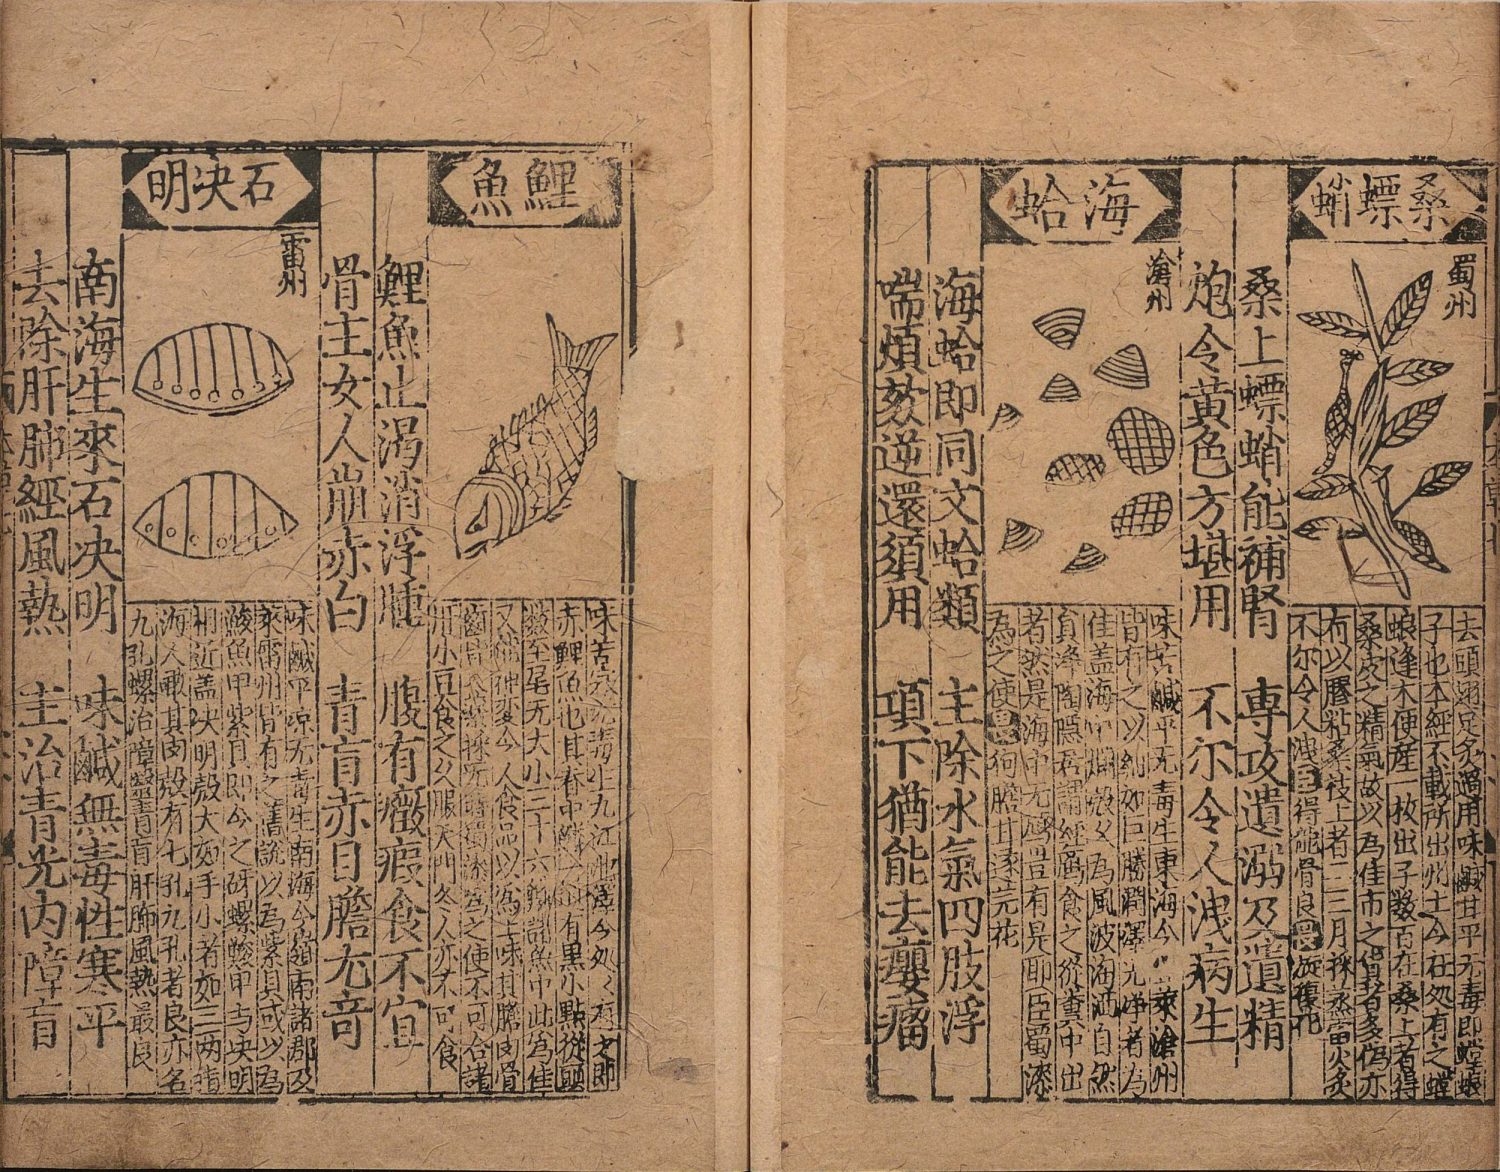 桑螵蛸
蜀州
去頭翅足炙過用味鹹甘平无毒即螳螂
子也本經不載所出州土今在処有之螳
螂逢木便産一枚出子數百在桑上者得
桑皮之精氣故以為佳市之貨者多偽亦
有以膠粘桑枝上者二三月採蒸當火炙
不尔令人洩 得龍骨良畏旋復花
桑上螵蛸能補腎 専攻遺溺及遺精
炮令黄色方堪用 不尔令人洩病生
海蛤
滄州
味苦鹹平无毒生東海今 萊滄州
皆有之以細如巨勝潤澤光浄者為
佳盖海中爛殼久為風波海涵自然
貟浄陶隱居謂経鴈食之從糞中出
者然是海中无鴈豈有是耶臣蜀漆
為之使畏狗膽甘遂芫花
海蛤即同文蛤類 主除水氣四肢浮
喘煩欬逆還須用 項下猶能去癭瘤
鯉魚
味苦 无毒生九江池澤今処〻有之即
赤鯉魚也其脊中鱗一 有黒小點從頭
數至尾无大小三十六鱗諸魚中此為佳
又能神変今人食品以為上味其膽肉骨
歯 蜀漆為之使不可合諸
肝小豆食之久服天門冬人亦不可食
鯉魚止渴消浮腫 腹有癥瘕食不宜
骨主女人崩赤白 青盲赤目膽尤奇
石决明
雷州
味鹹平凉无毒生南海今嶺南諸郡及
萊 州皆有之舊説以為紫貝或以為
鰒魚甲紫貝即今之砑螺鰒甲与决明
相近盖决明殼大如手小者如三両指
海人敢其肉殼有七孔九孔者良亦名
九孔螺治障翳青盲肝肺風熱最良
南海生來石决明 味鹹無毒性寒平
去除肝肺經風熱 主治青光内障盲